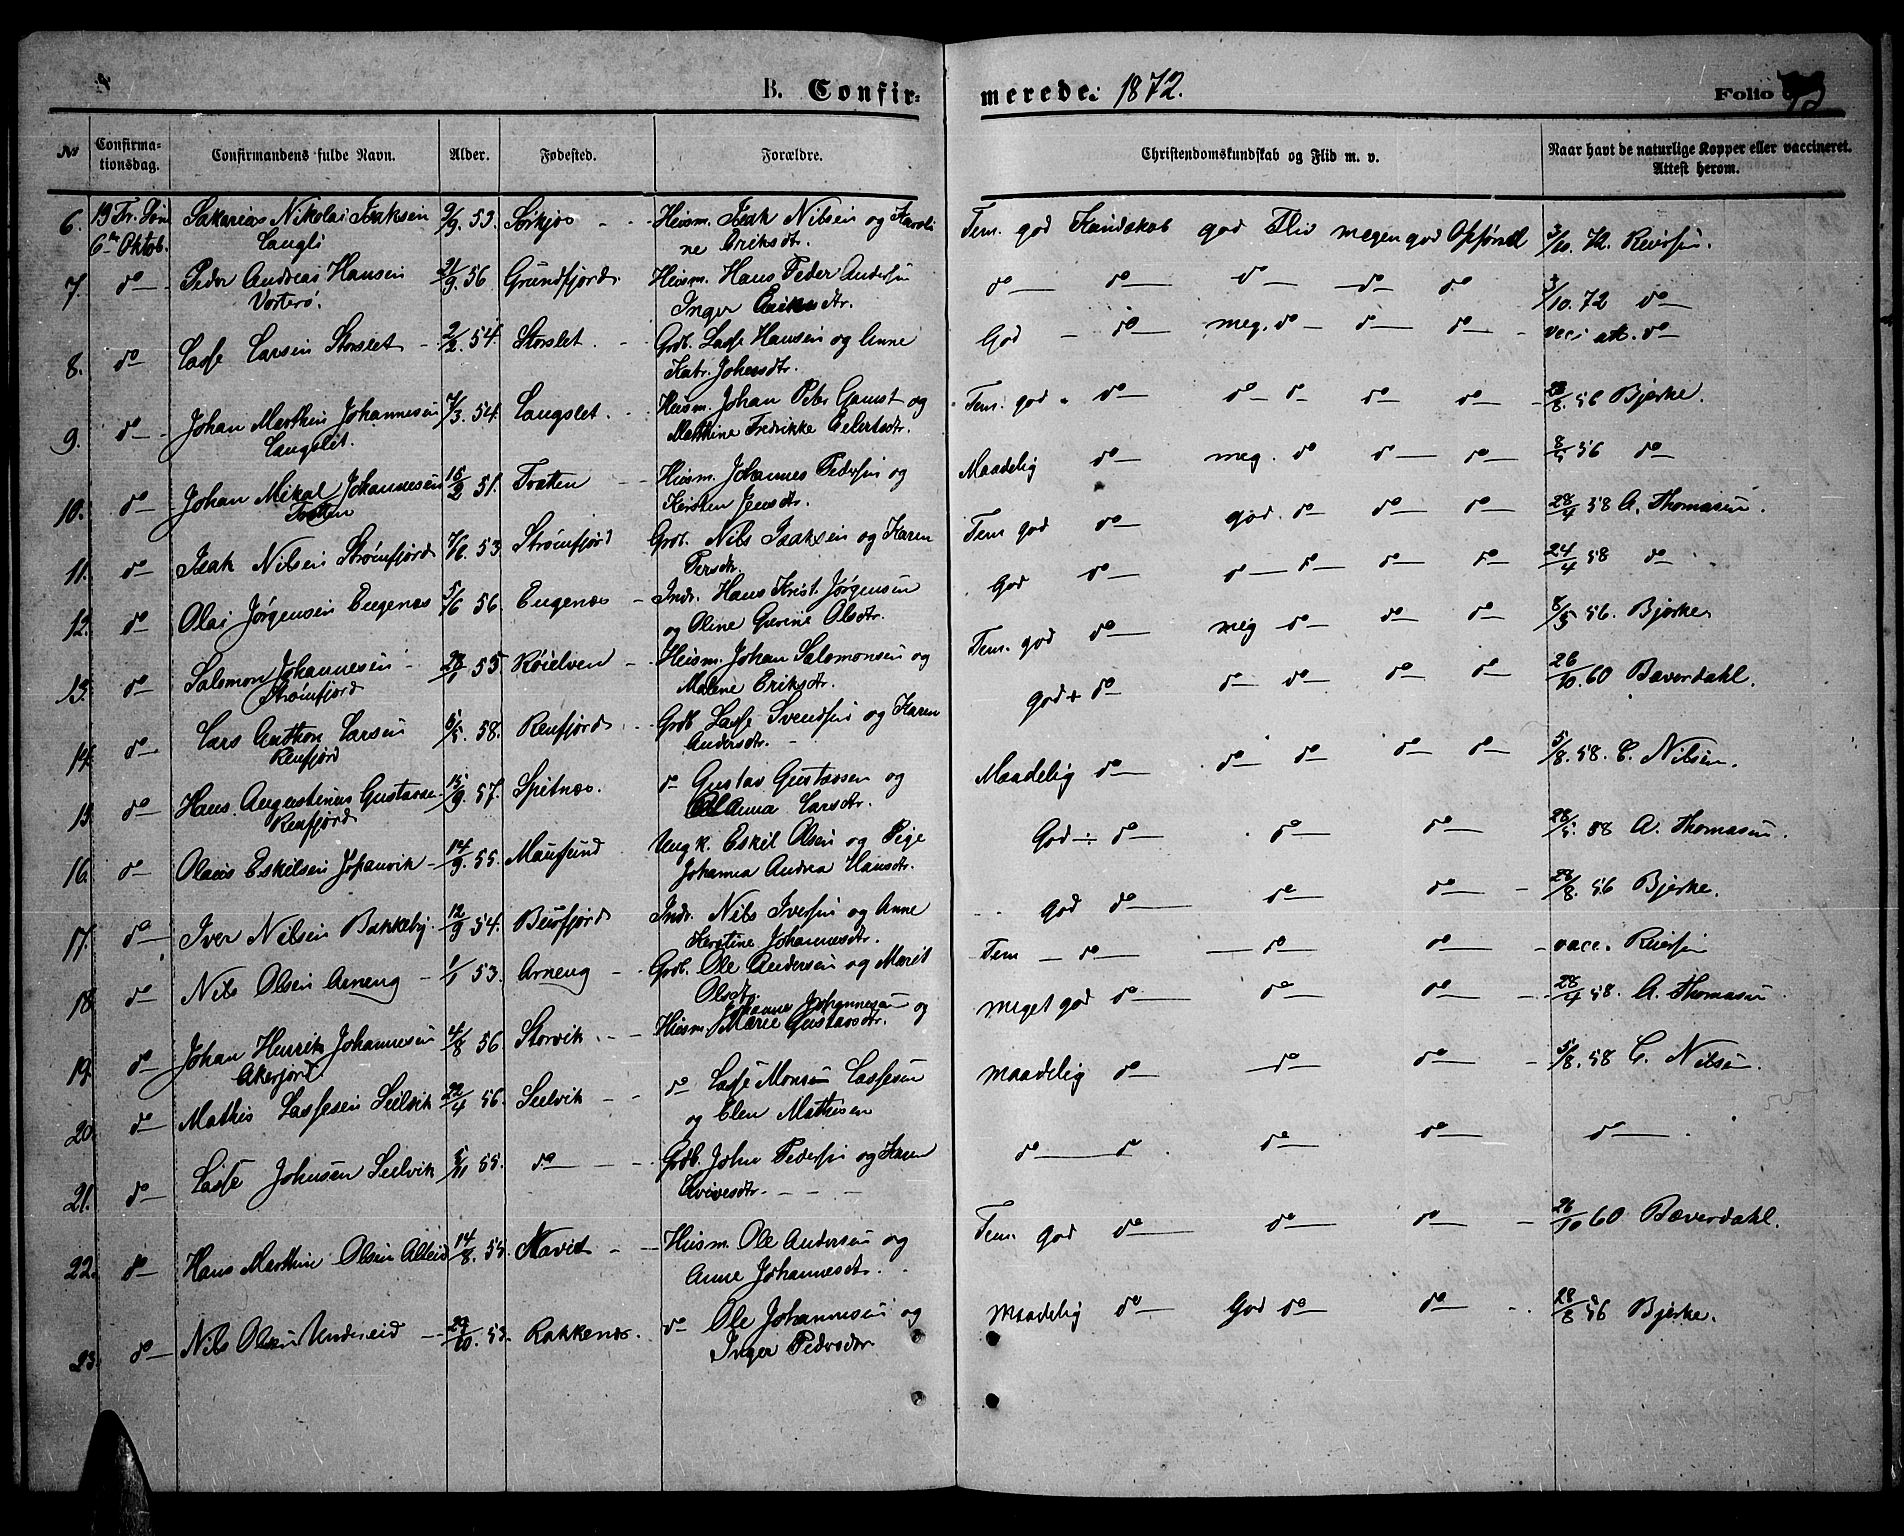 B. Confir=
merede: 1872.
Folio
No
Confirmationsdag.
Confirmandens fulde Navn.
Alder.
Fødested.
Forældre.
Christendomskundskab og Flid m. v.
Naar havt de naturlige Kopper eller vaccineret. Attest herom.
6. 19 Tr. Søn Sakarias Nikolai Isaksen 9/9. 53. Sørkjos Huusm. Isak Nilsen og Karoli Tem. god Kundskab god Flid megen god Opførsel 3/10. 72. Reiersen.
6te Oktob. Langli ne Eriksdtr.
7. do Peder Andreas Hansen 21/9. 56. Grundfjord Huusm. Hans Peder Andersen do do do do do 3/10. 72 do
Vorterø. Inger dtr.
8. do Lasse Larsen Storslet 2/2. 54. Storslet Grdb. Lasse Hansen og Anne God do meg. do do do do
Katr. Johnsdtr.
9. do Johan Marthin Johannesen 7/3. 54. Langslet Huusm. Johan Peter Gamst og Tem. god do do do do do 28/8. 56 Bjerke.
Langslet. Marthine Fredrikke Eilertsdtr.
10. do Johan Mikal Johannesen 15/2 51. Tratten Huusm. Johannes Pedersen og Maadelig do meg. do do do 56 do
Tratten Kirsten Jensdtr.
11. do Isak Nilsen Strømfjord 7/6. 53. Strømfjord Grdb. Nils Isaksen og Karen Tem. god do god. do do do 28/4 58 A. Thomasen.
Persdtr.
12. do Olai Jørgensen Eugenæs 5/6 56. Eugenæs Indr. Hans Krist. Jørgensen God do do do do do 24/4 58 do
og Oline Olsdtr.
13. do Salomon Johannesen 55 Røielven Huusm. Johan Salomonsen og Tem. god do meg do do do 8/5 56. Bjerke
Strømfjord Malene Eriksdtr.
14. do Lars Anthon Larsen 5/5. 58. Reinfjord Grdb. Lasse Svendsen og Karen god + do do do do do 26/10. 60 Bæverdahl.
Reinfjord Andersdtr.
15. do Hans Augustinus Gustavse 15/9. 57. Spitnæs. do Gustav Gustavsen og Maadelig do do do do do 5/8. 58. C. Nilsen.
Reinfjord Anna Larsdtr.
16. do Olaus Eskilsen Jøkanvik 14/9. 55. Maursund Ungk. Eskil Olsen og Pige God ÷ do do do 28/5. 58 A. Thomasen.
Johanna Andrea Hansdtr.
17. do Iver Nilsen Bakkeby 12/9 54. Beursfjord Indr. Nils Iversen og Anne God do do do 28/8. 56 Bjerke.
Kerstine Johannesdtr.
18. do Nils Olsen Arneng 1/1 53. Arneng Grdb. Ole Andersen og Marit Tem do do do vacc. Reiersen
Olsdtr.
19. do Johan Henrik Johannesen 4/8 56. Storvik Huusm. Johannes Johannesen og meget god do do do 28/4 58. A. Thomasen
Akerfjord Marie Gustavsdtr.
20. do Mathis Lassesen Seelvik 22/4 56. Seelvik do Lasse Monsen Lassesen maadelig do do do 5/8. 58 C. Nilsen.
og Elen Mathisen
21. do Lasse Johnsen Seelvik 5/11 55. do Grdb. John Pedersen og Karen do do do do do
Eriksdtr.
22. do Hans Marthin Olsen Alteid 14/8. 55. Navit Huusm. Ole Andersen og Tem. god do do do 26/10 60 Bæverdahl.
Anne Johannesdtr.
23. do Nils Olsen Undereid 29/10. 53. Rakkenæs. do Ole Johannesen og maadelig do God do do 28/8 56 Bjerke.
Inger Pedersdtr